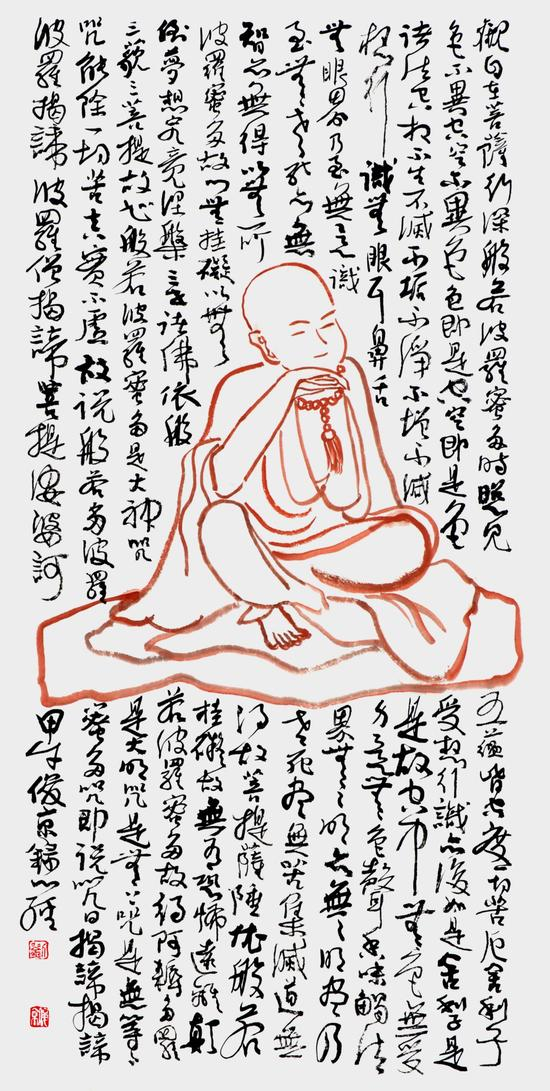 觀自在菩薩行深般若波羅蜜多時照見
五蘊皆空度一切苦厄舍利子
色不異空空不異色色即是空空即是色
受想行識亦復如是舍利子是
諸法空相不生不滅不垢不淨不增不減
是故空中無色無受
想行識無眼耳鼻舌
身意無色聲香味觸法
無眼界乃至無意識
界無無明亦無無明盡乃
至無老死亦無
老死盡無苦集滅道無
智亦無得以無所
得故菩提薩埵依般若
波羅蜜多故心無挂礙以無
挂礙故無有恐怖遠離顛
倒夢想究竟涅槃三世諸佛依般
若波羅蜜多故得阿耨多羅
三藐三菩提故知般若波羅蜜多是大神咒
是大明咒是無上咒是無等等
咒能除一切苦真實不虛故說般若多波羅
蜜多咒即說咒曰揭諦揭諦
波羅揭諦波羅僧揭諦菩提薩婆訶
甲午俊京錄心經